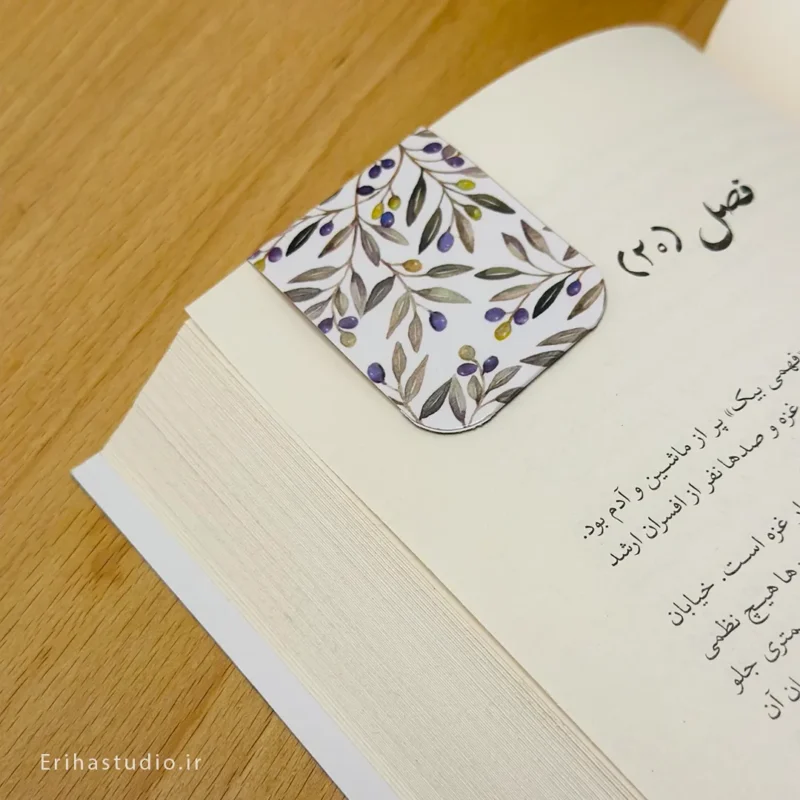 فصل (۲۰)
فهمی بیک» پر از ماشین و آدم بود.
غزه و صدها نفر از افسران ارشد
غزه است. خیابان
ها هیچ نظمی
متری جلو
آن
Erihastudio.ir